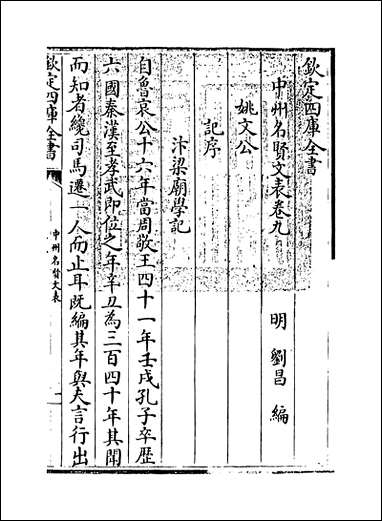 欽定四庫全書
中州名賢文表卷九
明 劉昌 編
姚文公
記序
汴梁廟學記
自魯哀公十六年當周敬王四十一年壬戌孔子卒歷
六國秦漢至孝武即位之年辛丑為三百四十年其聞
而知者纔司馬遷一人而止耳既編其年與夫言行出
欽定四庫全書
中州名賢文表